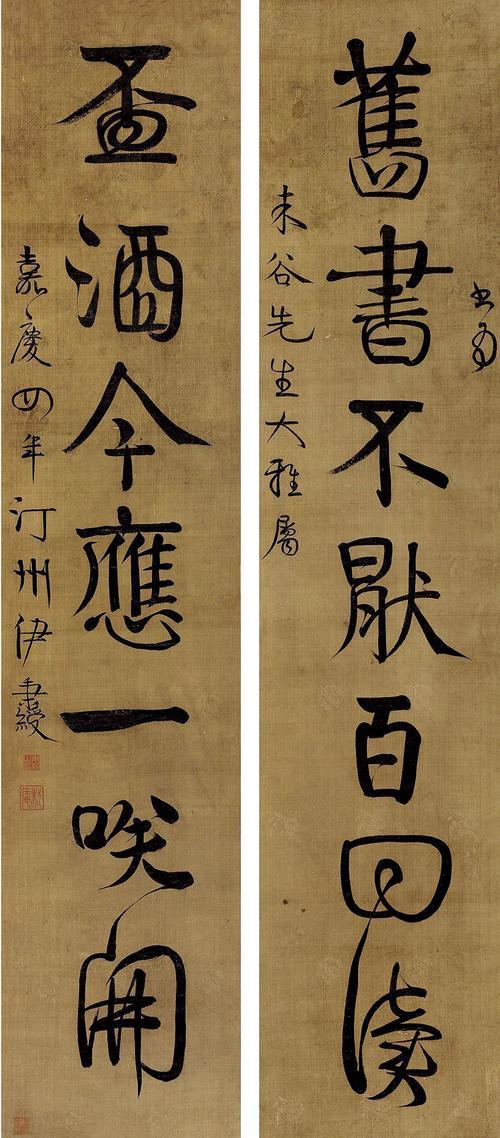 書為
舊書不猒百回讀
未谷先生大雅屬
盃酒今應一咲開
嘉慶四年汀州伊秉綬